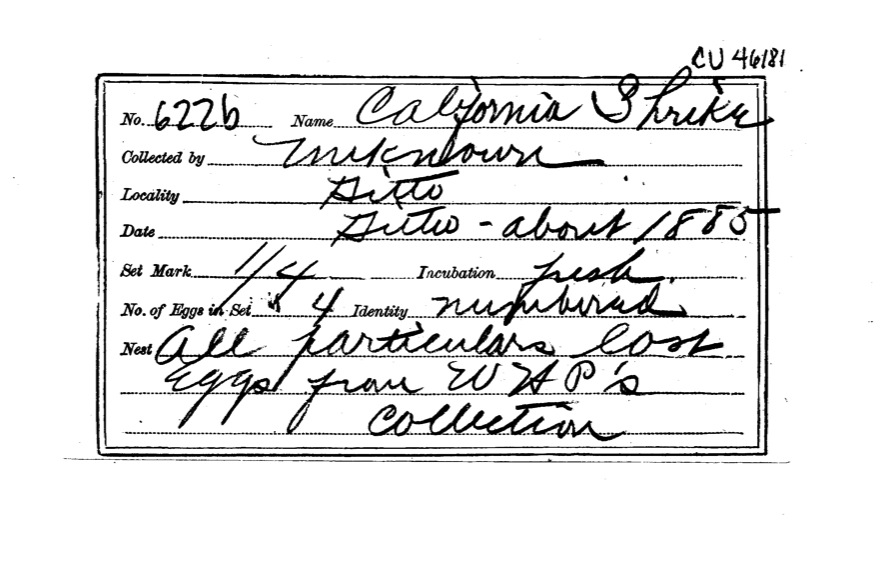 CU 46181
No. 622b Name California Shrike
Collected by Unknown
Locality Ditto
Date Ditto - about 1885
Set Mark 1/4 Incubation fresh
No. of Eggs in Set 4 Identity numbered
Nest All particulars lost
Eggs from W H P's
collection